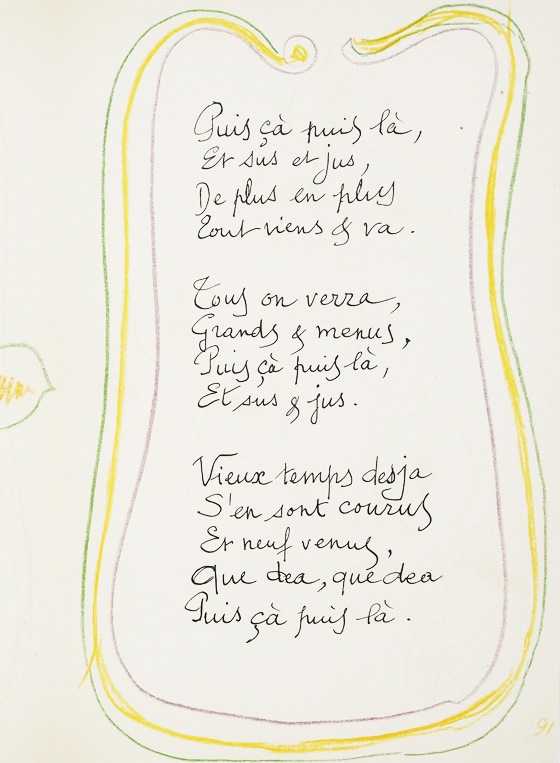 Puis çà puis là,
Et sus et jus,
De plus en plus
Tout viens & va.
Tous on verra,
Grands & menus,
Puis çà puis là,
Et sus & jus.
Vieux temps desja
S'en sont courus
Et neuf venus,
Que dea, que dea
Puis çà puis là.
91